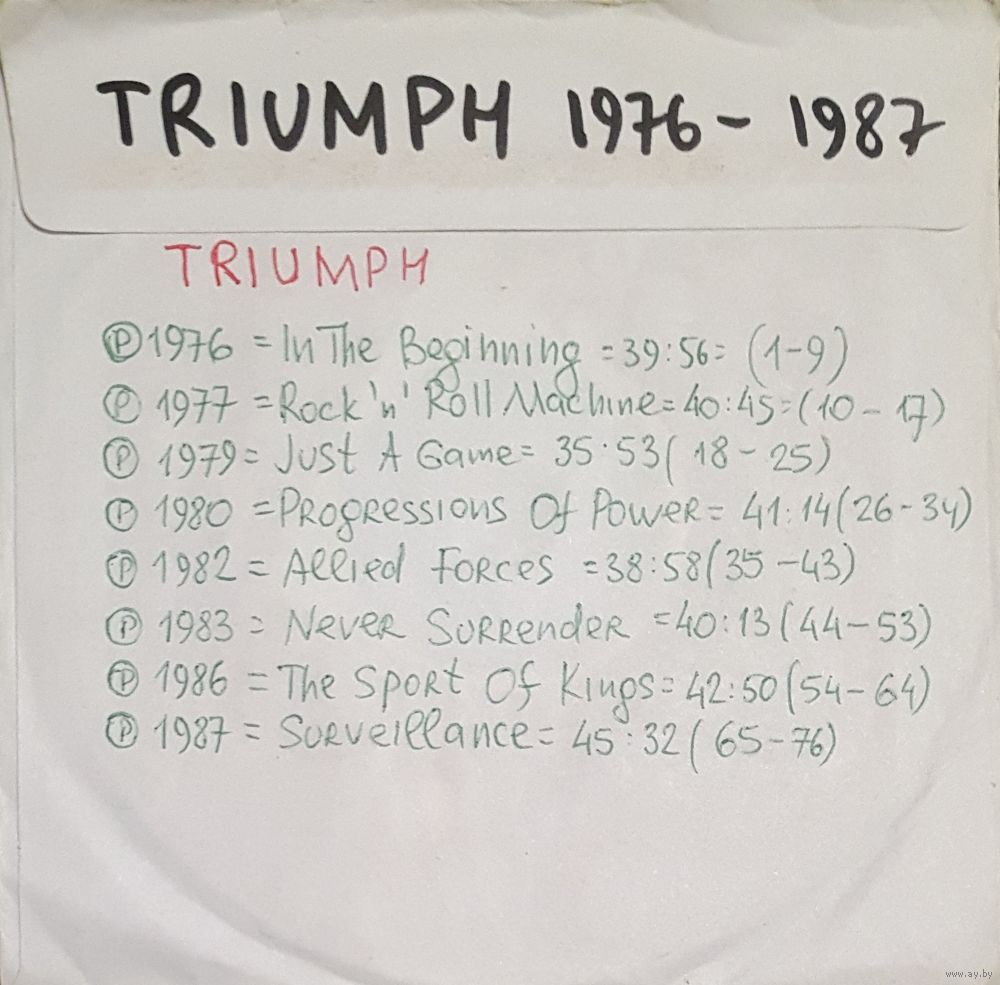 TRIUMPH 1976 - 1987
TRIUMPH
Ⓟ 1976 = In The Beginning = 39:56 = (1-9)
Ⓟ 1977 = Rock 'n' Roll Machine = 40:45 = (10 - 17)
Ⓟ 1979 = Just A Game = 35:53 (18 - 25)
Ⓟ 1980 = Progressions Of Power = 41:14 (26 - 34)
Ⓟ 1982 = Allied Forces = 38:58 (35 - 43)
Ⓟ 1983 = Never Surrender = 40:13 (44 - 53)
Ⓟ 1986 = The Sport Of Kings = 42:50 (54 - 64)
Ⓟ 1987 = Surveillance = 45:32 (65 - 76)
www.ay.by